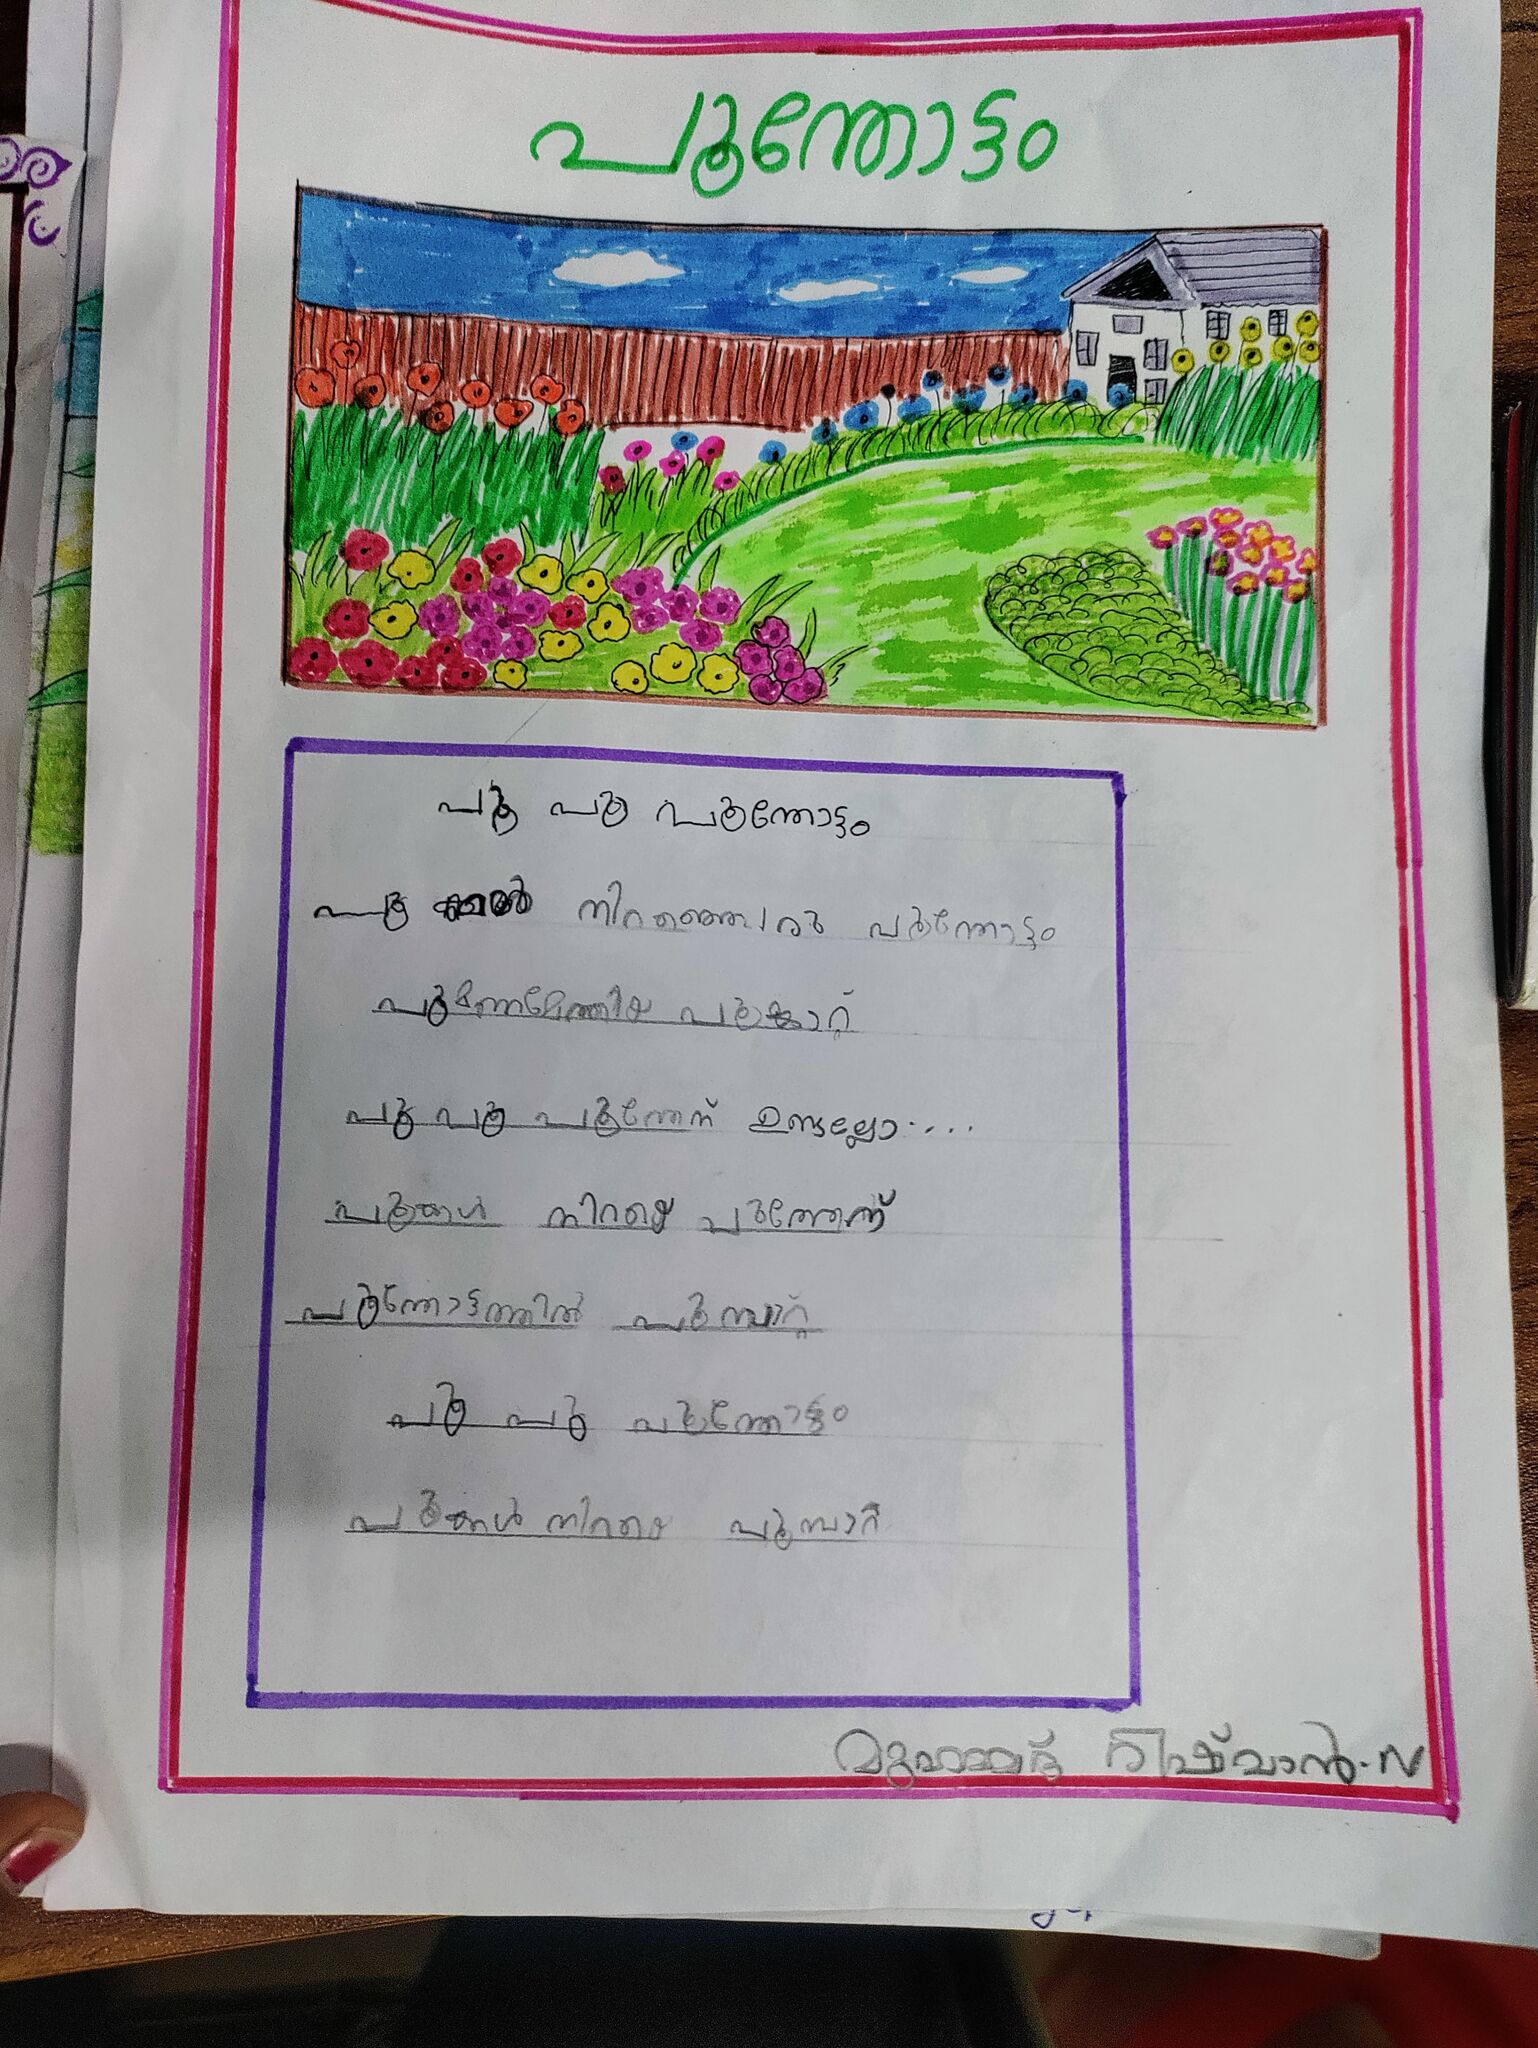 പൂന്തോട്ടം
പൂ പൂ പൂന്തോട്ടം
പൂ നിറഞ്ഞൊരു പൂന്തോട്ടം
പൂമണമേന്തിയ പൂങ്കാറ്റ്
പൂ പൂ പൂന്തേന് ഉണ്ടല്ലോ....
പൂക്കൾ നിറയെ പൂന്തേന്
പൂന്തോട്ടത്തിൽ പൂമ്പാറ്റ
പൂ പൂ പൂന്തോട്ടം
പൂക്കൾ നിറയെ പൂമ്പാറ്റ
മുഹമ്മദ് റിഷ്വാൻ.N